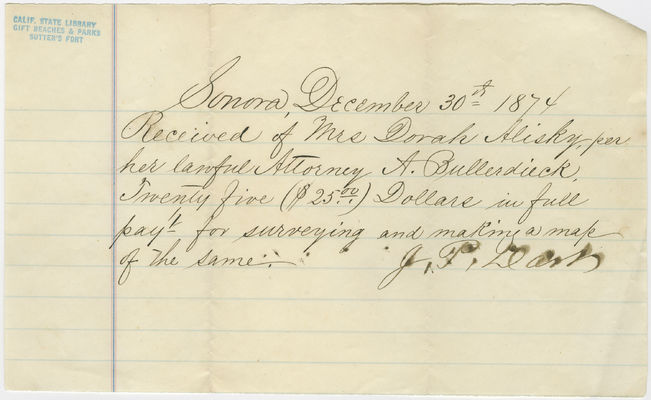 CALIF. STATE LIBRARY
GIFT BEACHES & PARKS
SUTTER'S FORT
Sonora, December 30th 1874
Received of Mrs Dorah Alisky, per
her lawful Attorney A. Bullerdieck,
Twenty five ($25.00) Dollars in full
payt. for surveying and making a map
of the same.
J. P. Dart